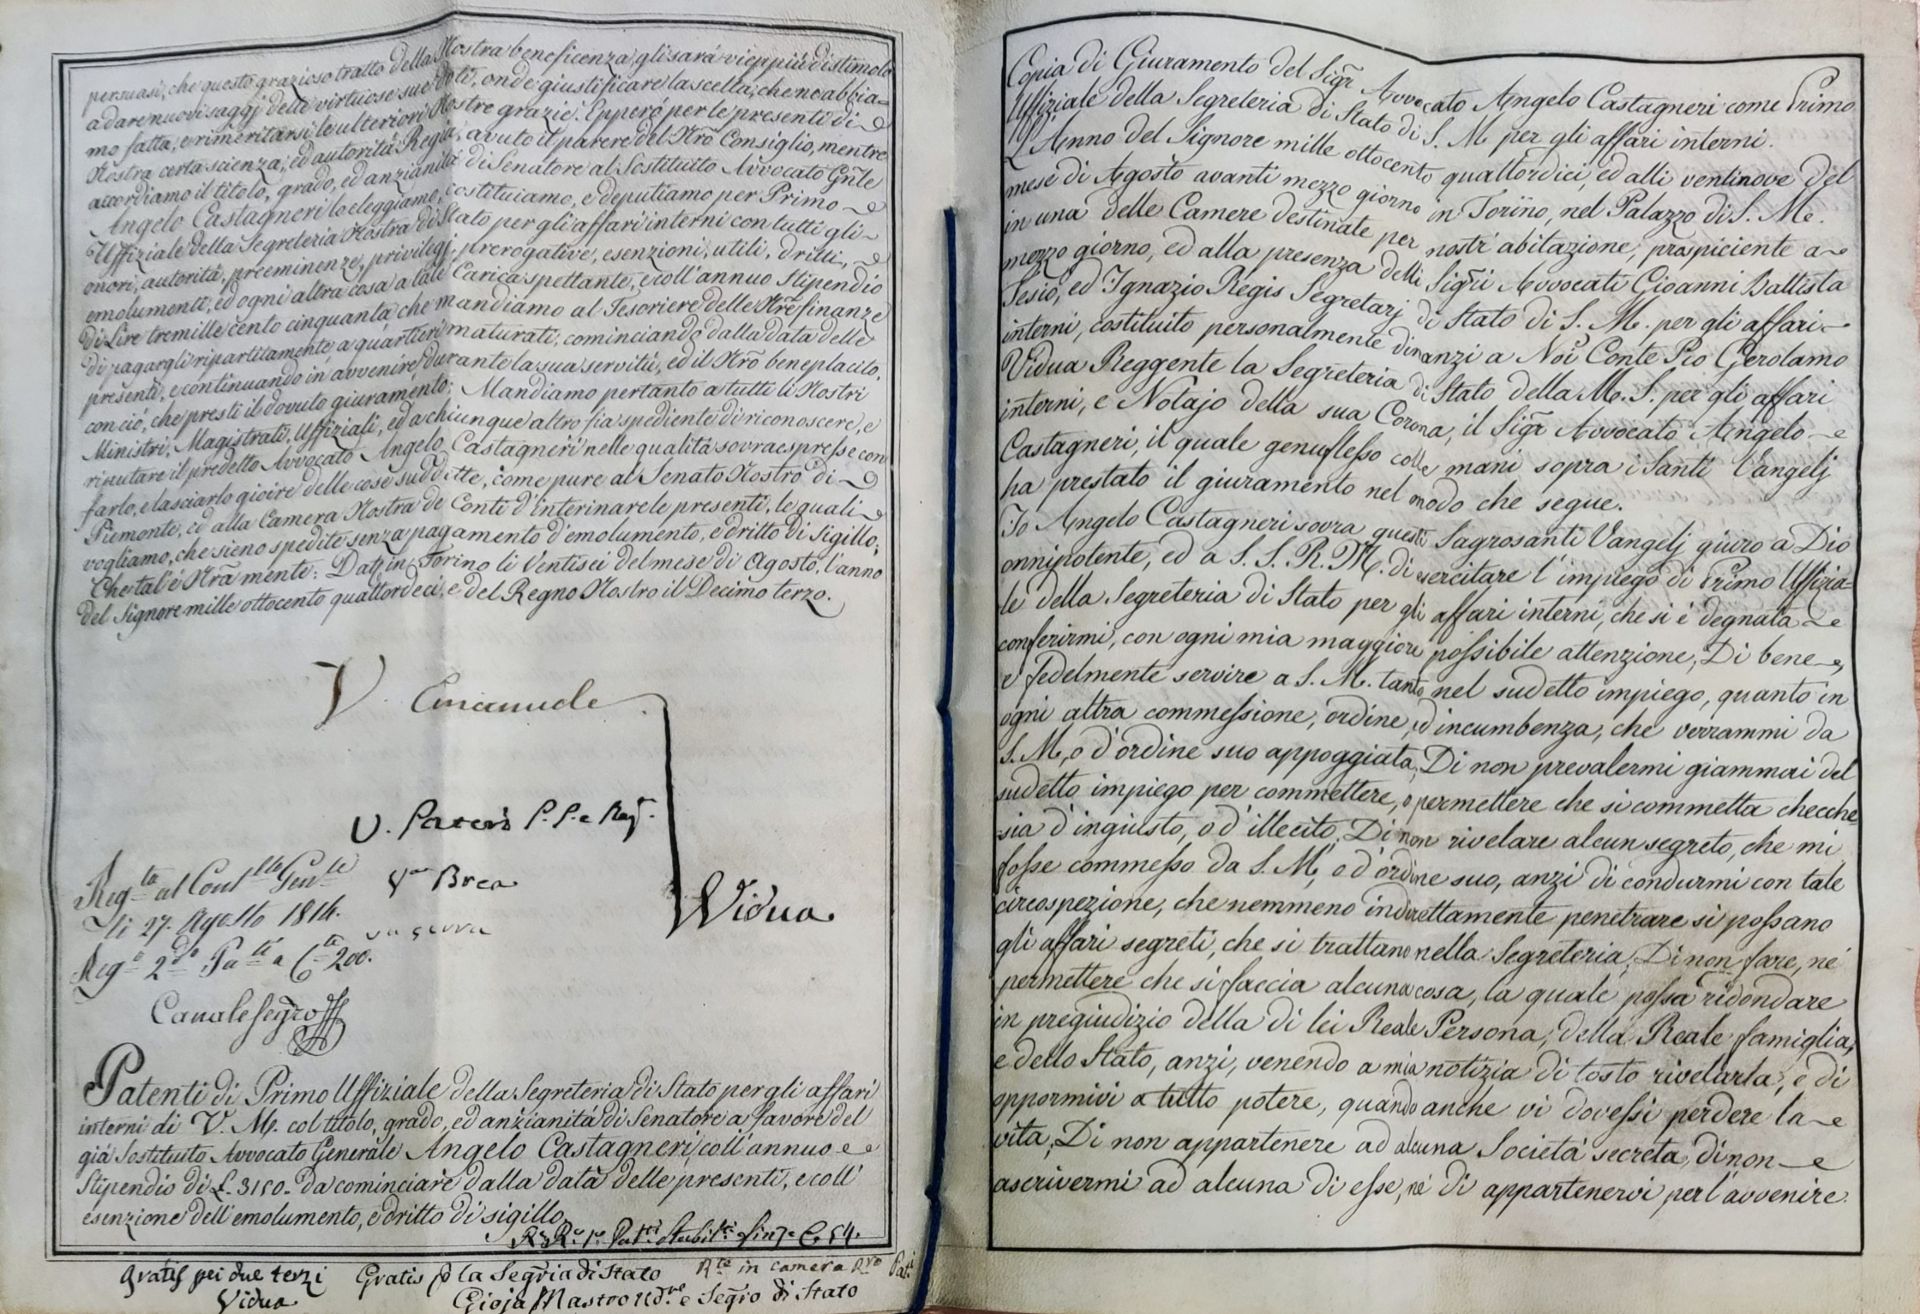 persuasi, che questo grazioso tratto della Nostra beneficenza gli sarà vieppiù di stimolo
a dare nuovi saggj delle virtuose sue doti, onde giustificare la scelta, che ne abbia-
mo fatta, e rimeritarsi le ulteriori Nostre grazie. Epperò per le presenti di
Nostra certa scienza, ed autorità Regia, avuto il parere del Nr̃o Consiglio, mentre
accordiamo il titolo, grado, ed anzianità di Senatore al Sostituito Avvocato Gñle
Angelo Castagneri lo eleggiamo, costituiamo, e deputiamo per Primo
Uffiziale della Segreteria Nostra di Stato per gli affari interni con tutti gli
onori, autorità, preeminenze, privilegj, prerogative, esenzioni, utili, dritti,
emolumenti, ed ogni altra cosa a tale Carica spettante, e coll'annuo Stipendio
di Lire tremille cento cinquanta che mandiamo al Tesoriere delle Nr̃e finanze
di pagargli ripartitamente, a quartieri maturati, cominciando dalla data delle
presenti, e continuando in avvenire, durante la sua servitù, ed il Nr̃o beneplacito,
con ciò, che presti il dovuto giuramento; Mandiamo pertanto a tutti li Nostri
Ministri, Magistrati, Uffiziali, ed a chiunque altro fia spediente di riconoscere, e
riputare il predetto Avvocato Angelo Castagneri nelle qualità sovraespresse con
farlo, e lasciarlo gioire delle cose suddette, come pure al Senato Nostro di
Piemonte, ed alla Camera Nostra de Conti d'Interinare le presenti, le quali
vogliamo, che sieno spedite senza pagamento d'emolumento, e dritto di Sigillo;
Che tal'è Nr̃a mente: Dat. in Torino li Ventisei del mese di Agosto, l'anno
del Signore mille ottocento quattordeci, e del Regno Nostro il Decimo terzo.
V. Emanuele
V. P. P. e Reg.
Brea
Vidua
Reg.ta al Cont.llo Gen.le
li 27. Agosto 1814.
Reg.o 2.do Pa.ti a C.ta 200.
Canale Segro
Patenti di Primo Uffiziale della Segreteria di Stato per gli affari
interni di V. M. col titolo, grado, ed anzianità di Senatore a favore del
già Sostituito Avvocato Generale Angelo Castagneri, coll'annuo
Stipendio di £. 3150. da cominciare dalla data delle presenti, e coll'
esenzione dell'emolumento, e dritto di sigillo
Gratis pei due terzi
Vidua
Gratis p la Segria di Stato
Gioja Mastro Ud.re e Segro di Stato
R.te in camera
Copia di Giuramento del Sigr̃ Avvocato Angelo Castagneri come Primo
Uffiziale della Segreteria di Stato di S. M. per gli affari interni.
L'Anno del Signore mille ottocento quattordici, ed alli ventinove del
mese di Agosto avanti mezzo giorno in Torino, nel Palazzo di S. M.
in una delle Camere destinate per nostr'abitazione, prospiciente a
mezzo giorno, ed alla presenza delli Sigr̃i Avvocati Gioanni Battista
Sesio, ed Ignazio Regis Segretarj di Stato di S. M. per gli affari
interni, costituito personalmente dinanzi a Noi Conte Pio Gerolamo
Vidua Reggente la Segreteria di Stato della M. S. per gli affari
interni, e Notajo della sua Corona, il Sigr̃ Avvocato Angelo
Castagneri, il quale genuflesso colle mani sopra i Santi Vangelj
ha prestato il giuramento nel modo che segue.
Io Angelo Castagneri sovra questi Sagrosanti Vangelj giuro a Dio
onnipotente, ed a S. S. R. M. di esercitare l'impiego di Primo Uffizia-
le della Segreteria di Stato per gli affari interni, che si è degnata
conferirmi, con ogni mia maggiore possibile attenzione, Di bene,
e fedelmente servire a S. M. tanto nel sudetto impiego, quanto in
ogni altra commessione, ordine, ed incumbenza, che verrammi da
S. M., o d'ordine suo appoggiata, Di non prevalermi giammai del
sudetto impiego per commettere, o permettere che si commetta checche-
sia d'ingiusto, o d'illecito, Di non rivelare alcun segreto, che mi
fosse commesso da S. M., o d'ordine suo, anzi di condurmi con tale
circospezione, che nemmeno indirettamente penetrare si possano
gli affari segreti, che si trattano nella Segreteria, Di non fare, nè
permettere che si faccia alcuna cosa, la quale possa ridondare
in pregiudizio della di lei Reale Persona, della Reale famiglia,
e dello Stato, anzi, venendo a mia notizia di tosto rivelarla, e di
oppormivi a tutto potere, quando anche vi dovessi perdere la
vita, Di non appartenere ad alcuna Società secreta, di non
ascrivermi ad alcuna di esse, nè di appartenervi per l'avvenire.